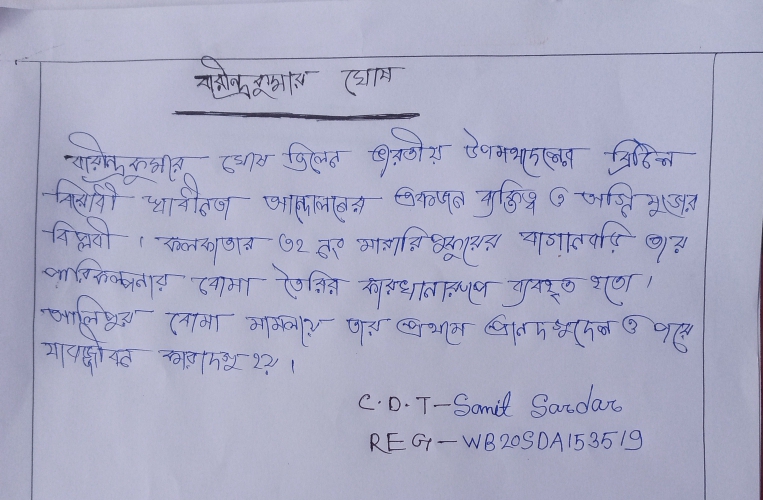 বারীন্দ্রকুমার ঘোষ
বারীন্দ্রকুমার ঘোষ ছিলেন ভারতীয় উপমহাদেশের ব্রিটিশ
বিরোধী স্বাধীনতা আন্দোলনের একজন ব্যক্তিত্ব ও অগ্নি যুগের
বিপ্লবী। কলকাতার ৩২ নং মারারি পুকুরের বাগানবাড়ি তার
পরিকল্পনার বোমা তৈরির কারখানারূপে ব্যবহৃত হতো।
আলিপুর বোমা মামলায় তার প্রথমে প্রানদন্ডদেশ ও পরে
যাবজ্জীবন কারাদন্ড হয়।
C.D.T-Samit Sardar
REG-WB20SDA153519